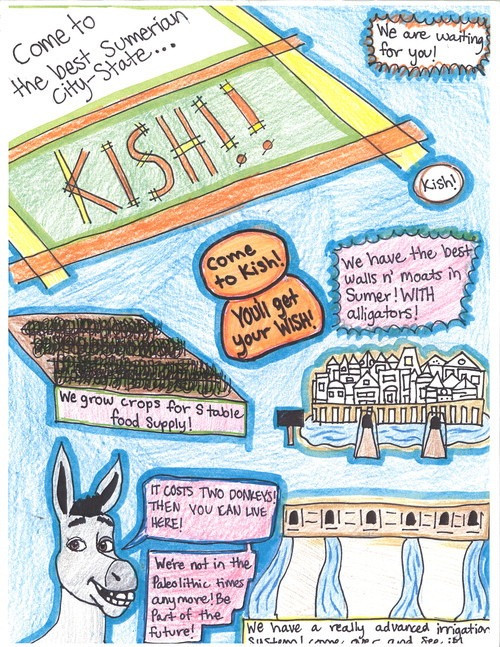 Come to
the best Sumerian
City-State...
KISH!!
We are waiting
for you!
Kish!
Come
to Kish!
You'll get
your WISH!
We have the best
walls n' moats in
Sumer! WITH
alligators!
We grow crops for stable
food supply!
IT COSTS TWO DONKEYS!
THEN YOU CAN LIVE
HERE!
We're not in the
Paleolithic times
anymore! Be
Part of the
future!
We have a really advanced irrigation
system! come over and see it!